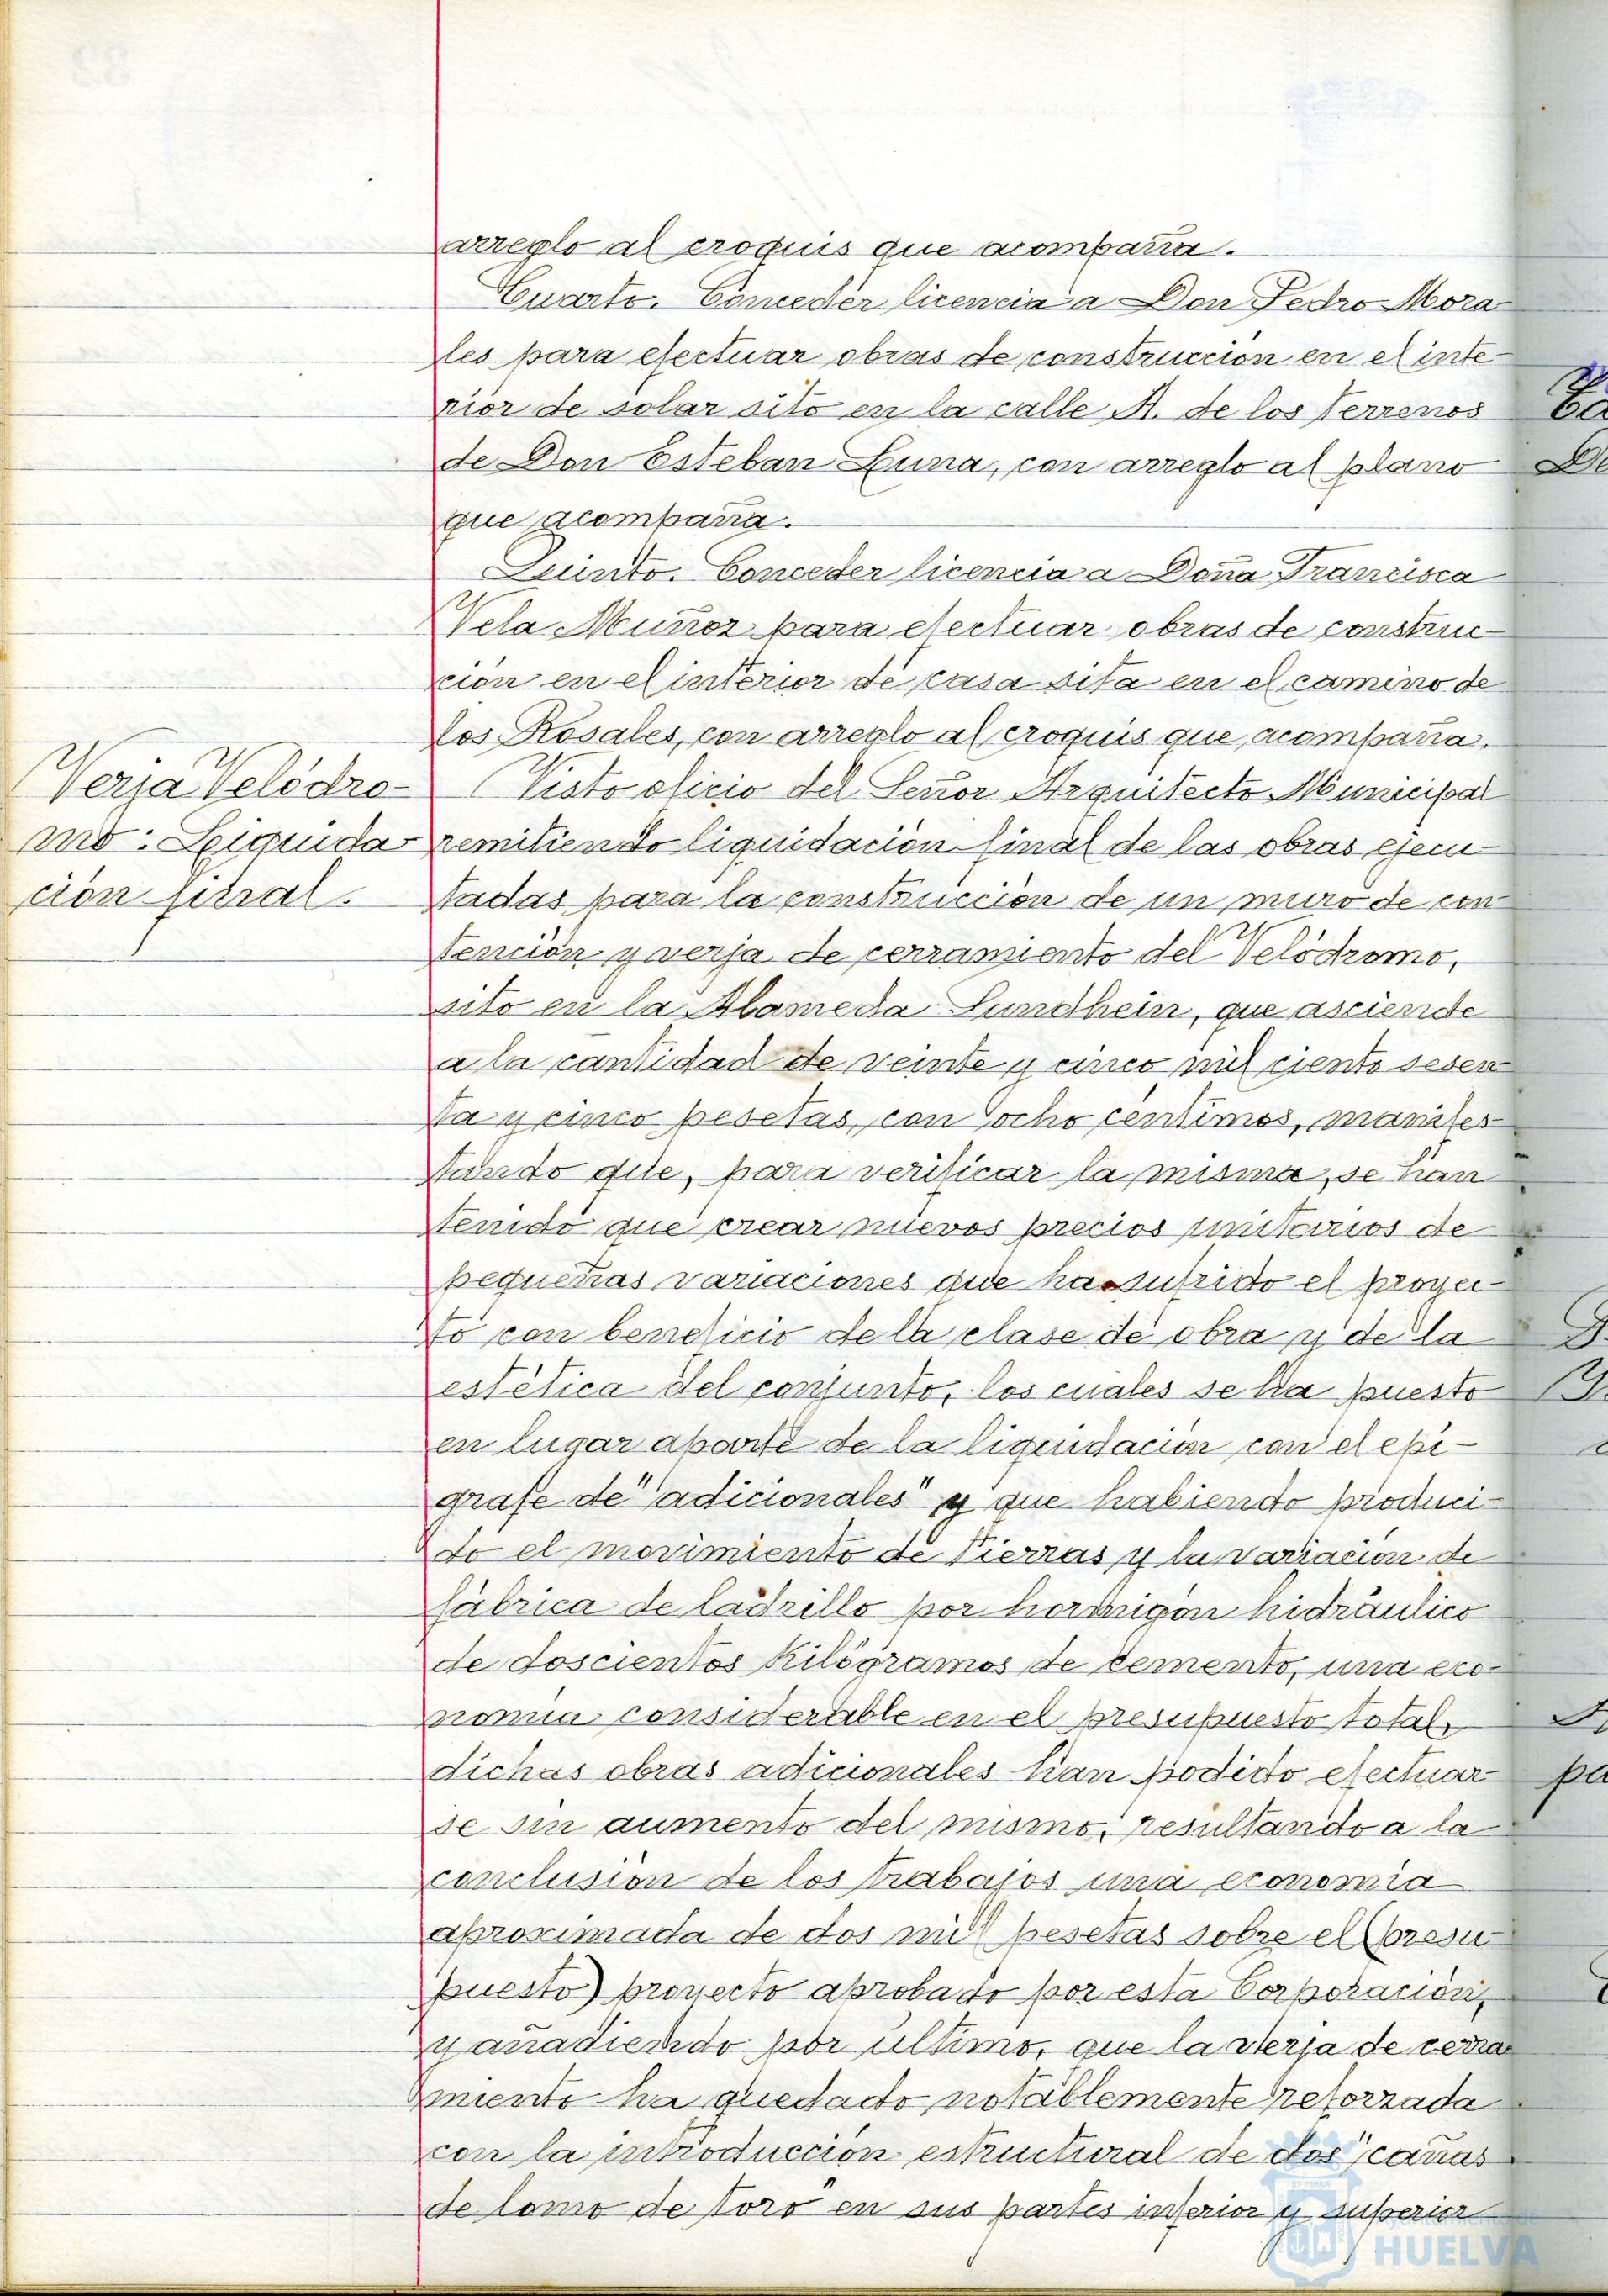 arreglo al croquis que acompaña.
Cuarto. Conceder licencia a Don Pedro Mora
les para efectuar obras de construcción en el inte
rior de solar sito en la calle A. de los terrenos
de Don Esteban Luna, con arreglo al plano
que acompaña.
Quinto. Conceder licencia a Doña Francisca
Vela Muñoz para efectuar obras de construc-
ción en el interior de casa sita en el camino de
los Rosales, con arreglo al croquis que acompaña.
Verja Velódro-
mo: Liquida-
ción final.
Visto oficio del Señor Arquitecto Municipal
remitiendo liquidación final de las obras ejecu-
tadas para la construcción de un muro de con
tención y verja de cerramiento del Velódromo,
sito en la Alameda Sundhein, que asciende
a la cantidad de veinte y cinco mil ciento sesen
ta y cinco pesetas, con ocho centimos, manifes-
tando que, para verificar la misma, se han
tenido que crear nuevos precios unitarios de
pequeñas variaciones que ha sufrido el proyec-
to con beneficio de la clase de obra y de la
estética del conjunto, los cuales se ha puesto
en lugar aparte de la liquidación con el epí-
grafe de "adicionales" y que habiendo produci-
do el movimiento de tierras y la variación de
fábrica de ladrillo por hormigón hidráulico
de doscientos kilógramos de cemento, una eco-
nomía considerable en el presupuesto total,
dichas obras adicionales han podido efectuar
se sin aumento del mismo, resultando a la
conclusión de los trabajos una economía
aproximada de dos mil pesetas sobre el (presu
puesto) proyecto aprobado por esta Corporación,
y añadiendo por último, que la verja de cerra
miento ha quedado notablemente reforzada
con la introducción estructural de dos "cañas
de lomo de toro" en sus partes inferior y superior
HUELVA